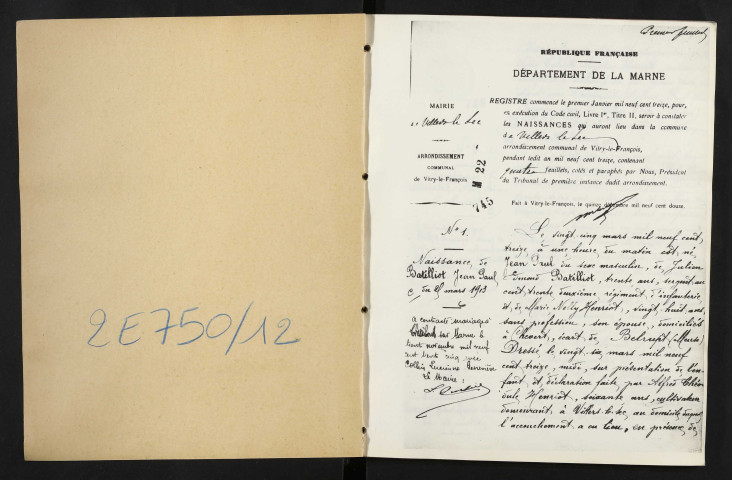 2E750/12
Premier feuillet
RÉPUBLIQUE FRANÇAISE
DÉPARTEMENT DE LA MARNE
MAIRIE
de Villers le Sec
ARRONDISSEMENT
COMMUNAL
de Vitry-le-François
REGISTRE commencé le premier Janvier mil neuf cent treize, pour,
en exécution du Code civil, Livre Ier, Titre II, servir à constater
les NAISSANCES qui auront lieu dans la commune
de Villers le Sec
arrondissement communal de Vitry-le-François,
pendant ledit an mil neuf cent treize, contenant
quatre feuillets, cotés et paraphés par Nous, Président
du Tribunal de première instance dudit arrondissement.
Fait à Vitry-le-François, le quinze décembre mil neuf cent douze.
22
745
No 1.
Naissance de
Batilliot Jean Paul
du 25 mars 1913
A contracté mariage à
sur Marne le
trente novembre mil neuf
cent trente cinq avec
Collin Lucienne
Le Maire :
Le vingt cinq mars mil neuf cent
treize, à une heure du matin est né,
Jean Paul du sexe masculin, de Julien
Edmond Batilliot, trente ans, sergent au
cent trente deuxième régiment d'infanterie
et de Marie Henriot, vingt huit ans,
sans profession, son épouse, domiciliés
à écart de Belrupt (Meuse)
Dressé le vingt six mars mil neuf
cent treize, midi, sur présentation de l'en-
fant et déclaration faite par Alfred Théo-
dule Henriot, soixante ans, cultivateur
demeurant à Villers-le-Sec, au domicile duquel
l'accouchement a eu lieu, en présence de